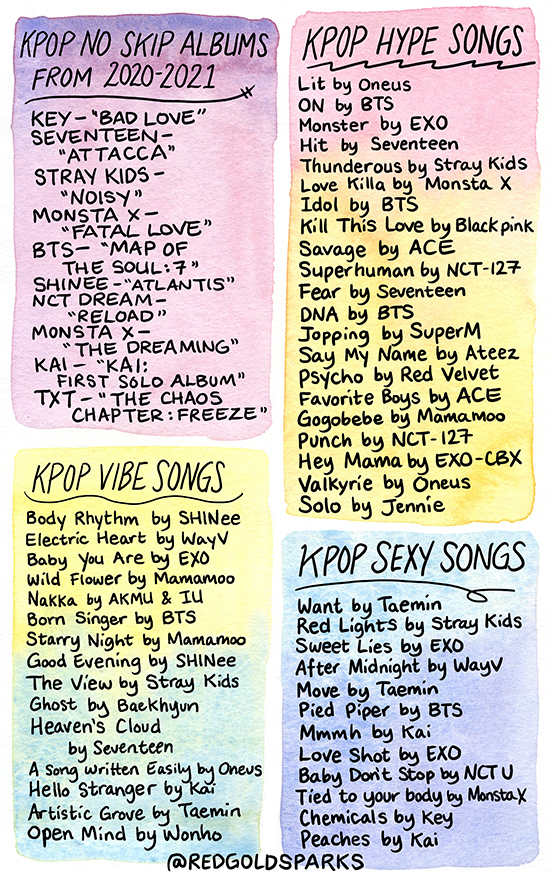 KPOP NO SKIP ALBUMS
FROM 2020-2021
KEY – "BAD LOVE"
SEVENTEEN –
"ATTACCA"
STRAY KIDS –
"NOISY"
MONSTA X –
"FATAL LOVE"
BTS – "MAP OF
THE SOUL: 7"
SHINEE – "ATLANTIS"
NCT DREAM –
"RELOAD"
MONSTA X –
"THE DREAMING"
KAI – "KAI:
FIRST SOLO ALBUM"
TXT – "THE CHAOS
CHAPTER: FREEZE"
KPOP HYPE SONGS
Lit by Oneus
ON by BTS
Monster by EXO
Hit by Seventeen
Thunderous by Stray Kids
Love Killa by Monsta X
Idol by BTS
Kill This Love by Blackpink
Savage by ACE
Superhuman by NCT-127
Fear by Seventeen
DNA by BTS
Jopping by SuperM
Say My Name by Ateez
Psycho by Red Velvet
Favorite Boys by ACE
Gogobebe by Mamamoo
Punch by NCT-127
Hey Mama by EXO-CBX
Valkyrie by Oneus
Solo by Jennie
KPOP VIBE SONGS
Body Rhythm by SHINee
Electric Heart by WayV
Baby You Are by EXO
Wild Flower by Mamamoo
Nakka by AKMU & IU
Born Singer by BTS
Starry Night by Mamamoo
Good Evening by SHINee
The View by Stray Kids
Ghost by Baekhyun
Heaven's Cloud
by Seventeen
A Song Written Easily by Oneus
Hello Stranger by Kai
Artistic Grove by Taemin
Open Mind by Wonho
KPOP SEXY SONGS
Want by Taemin
Red Lights by Stray Kids
Sweet Lies by EXO
After Midnight by WayV
Move by Taemin
Pied Piper by BTS
Mmmh by Kai
Love Shot by EXO
Baby Don't Stop by NCT U
Tied to your body by Monsta X
Chemicals by Key
Peaches by Kai
@REDGOLDSPARKS